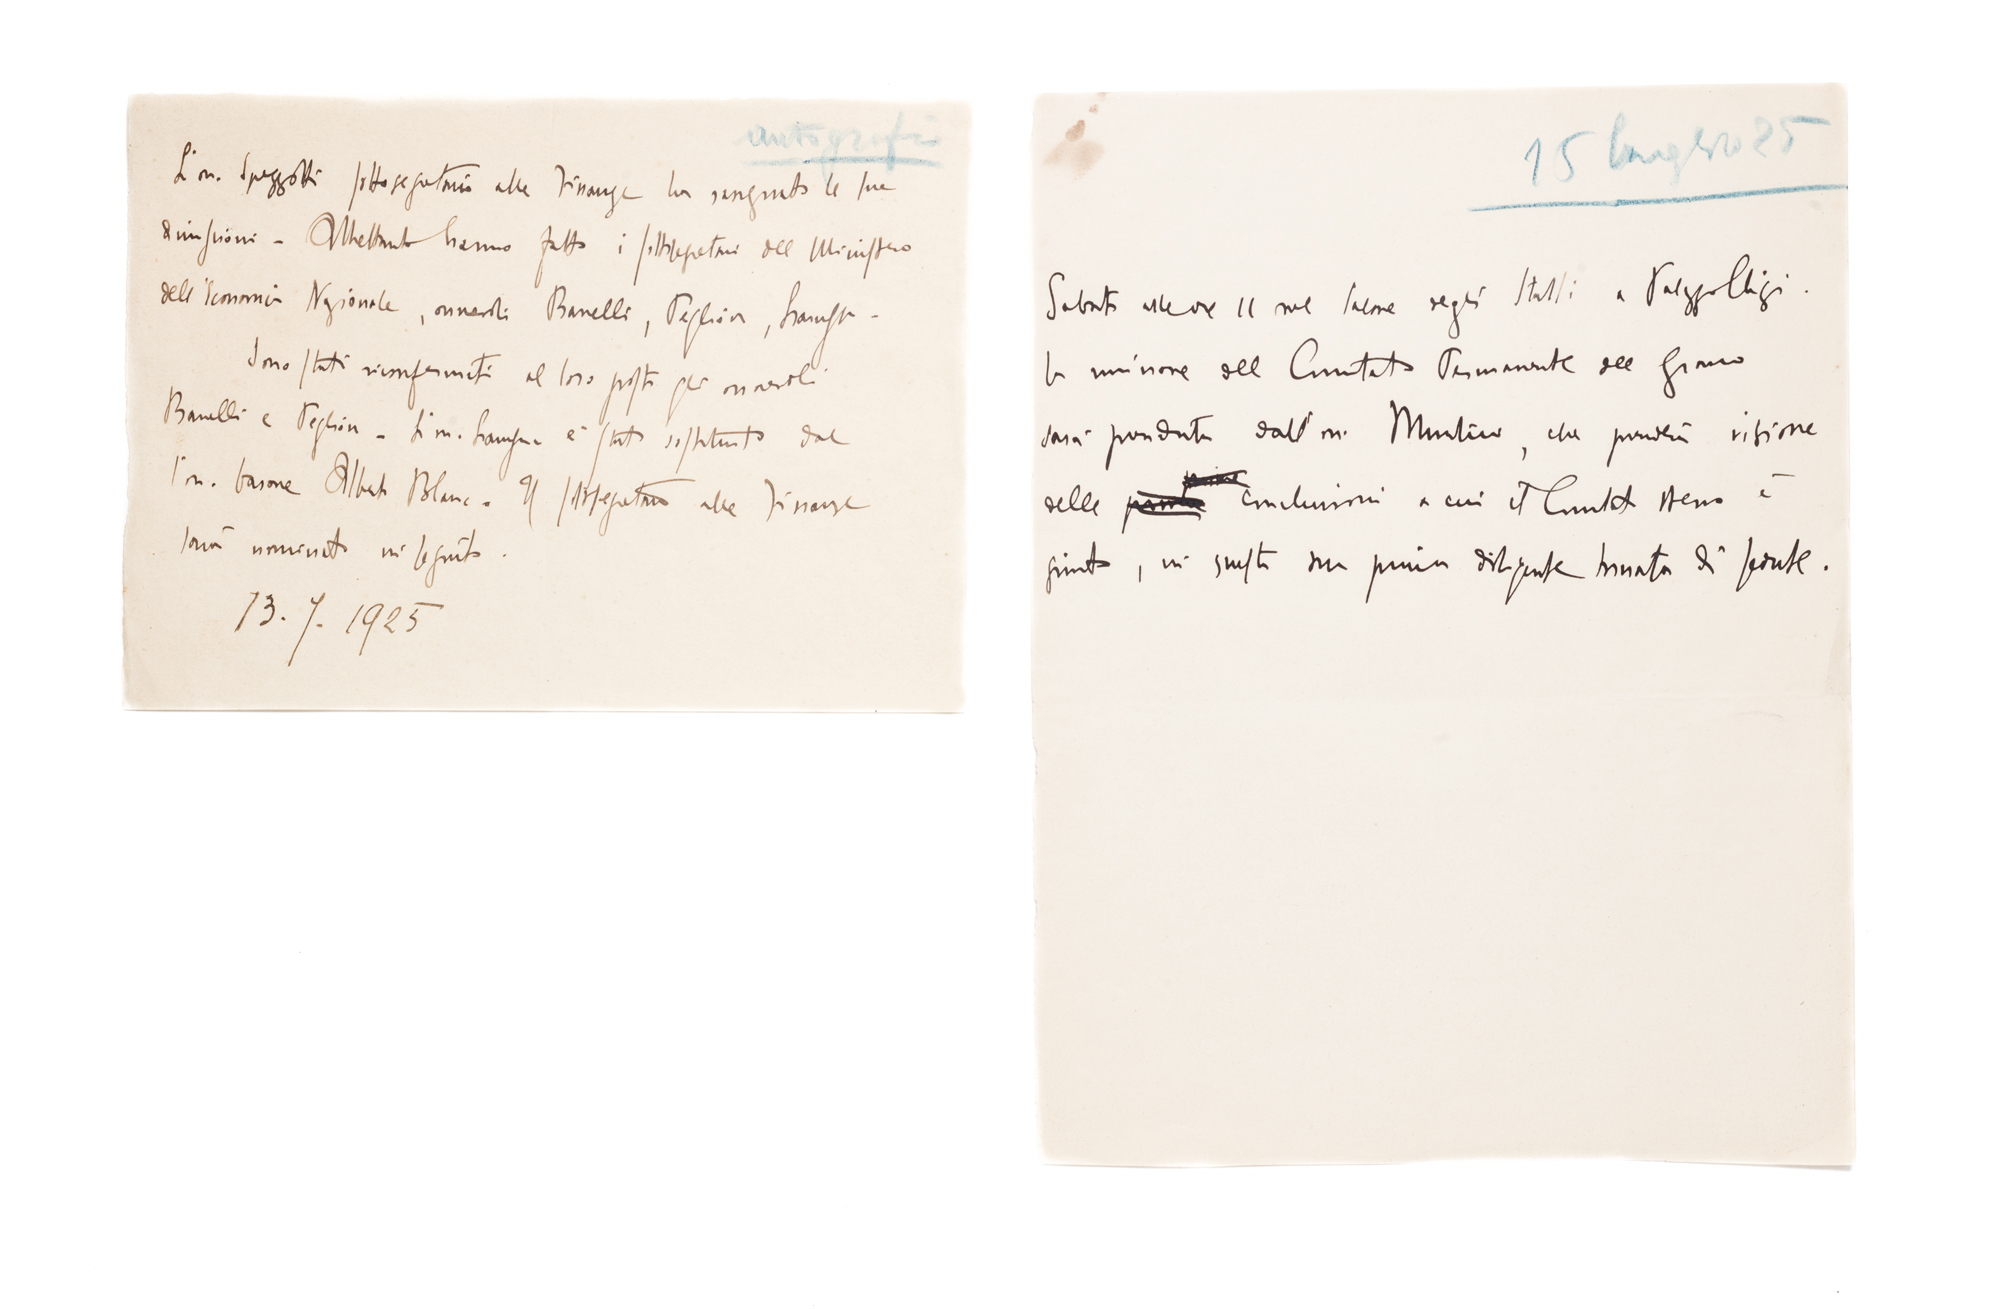 autografi
L'on. Spezzotti sottosegretario alle Finanze ha rassegnato le sue
dimissioni - Altrettanto hanno fatto i sottosegretari del Ministero
dell'Economia Nazionale, onorevoli Banelli, Peglion, Larussa -
Sono stati riconfermati al loro posto gli onorevoli
Banelli e Peglion - L'on. Larussa è stato sostituito dal
l'on. barone Alberto Blanc - Il sottosegretario alle Finanze
sarà nominato in seguito.
13. 7. 1925
15 luglio 25
Sabato alle ore 11 nel salone degli Stalli a Palazzo Chigi.
la riunione del Comitato Permanente del Grano
sarà presieduta dall'on. Mussolini, che prenderà visione
delle conclusioni a cui il Comitato stesso è
giunto, in questa sua prima diligente tornata di sedute.